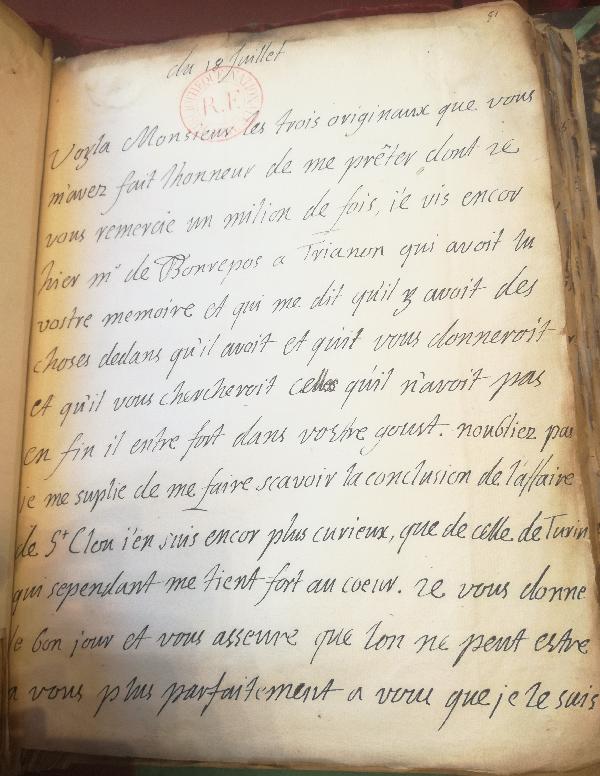 91
du 18 Juillet
BIBLIOTHEQUE NATIONALE
R.F.
Voyla Monsieur les trois originaux que vous
m'avez fait l'honneur de me prêter dont ie
vous remercie un milion de fois, i'e vis encor
hier mr de Bonrepos a Trianon qui avoit lu
vostre memoire et qui me dit qu'il y avoit des
choses dedans qu'il avoit et qu'il vous donneroit
et qu'il vous chercheroit celles qu'il n'avoit pas
en fin il entre fort dans vostre goust. noubliez pas
ie me suplie de me faire scavoir la conclusion de l'affaire
de St Clou i'en suis encor plus curieux, que de celle de Turin
qui sependant me tient fort au coeur. ie vous donne
le bon jour et vous asseure que lon ne peut estre
a vous plus parfaitement a vous que je le suis